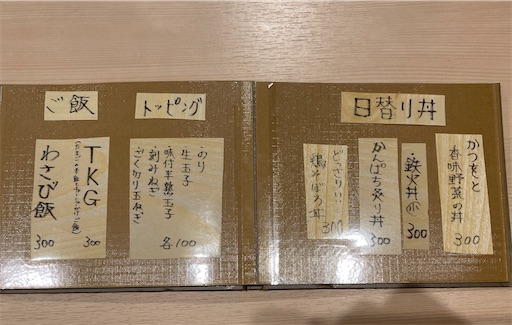 日替り丼
かつをと
香味野菜の丼
300
・鉄火丼小
300
かんぱち炙り丼
300
どっさりい
鶏そぼろ丼
300
トッピング
・のり
・生玉子
・味付半熟玉子
・刻みねぎ
各100
ご飯
TKG
300
わさび飯
300